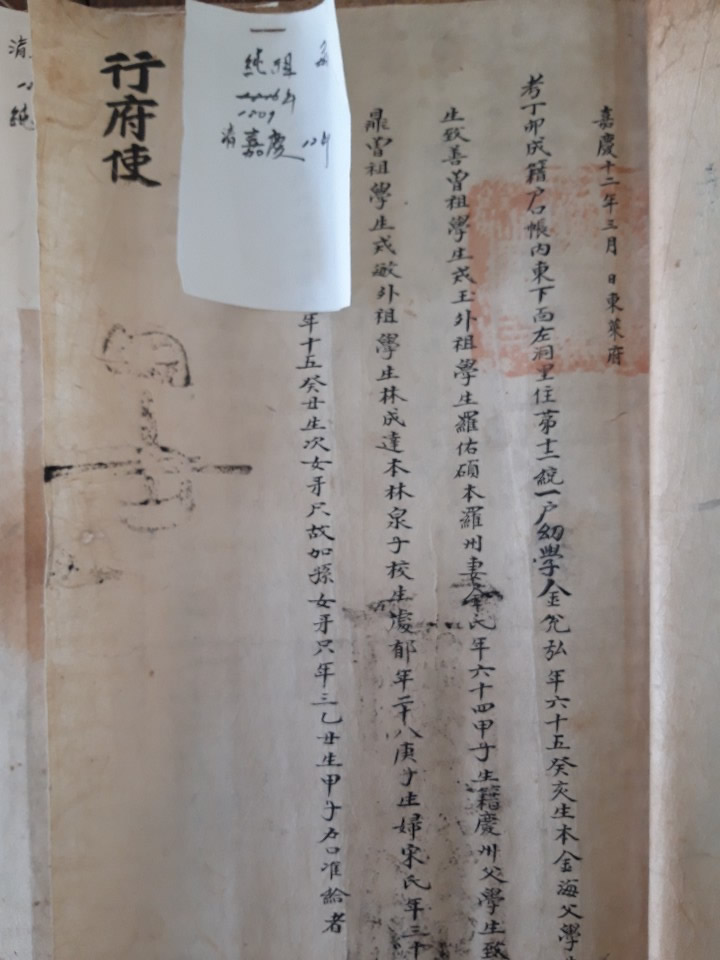 嘉慶十二年三月 日東萊府
考丁卯成籍戶口帳內東下面左洞里住第十二統一戶幼學金允弘年六十五癸亥生本金海父學生
生致善曾祖學生戎玉外祖學生羅佑碩本羅州妻金氏年六十四甲子生籍慶州父學生致
鼎曾祖學生戎敏外祖學生林成達本林泉子校生慶郁年二十八庚子生婦宋氏年三十
年十五癸丑生次女牙只故加孫女牙只年三乙丑生甲子戶口准給者
純祖
1809
清嘉慶
行府使
純